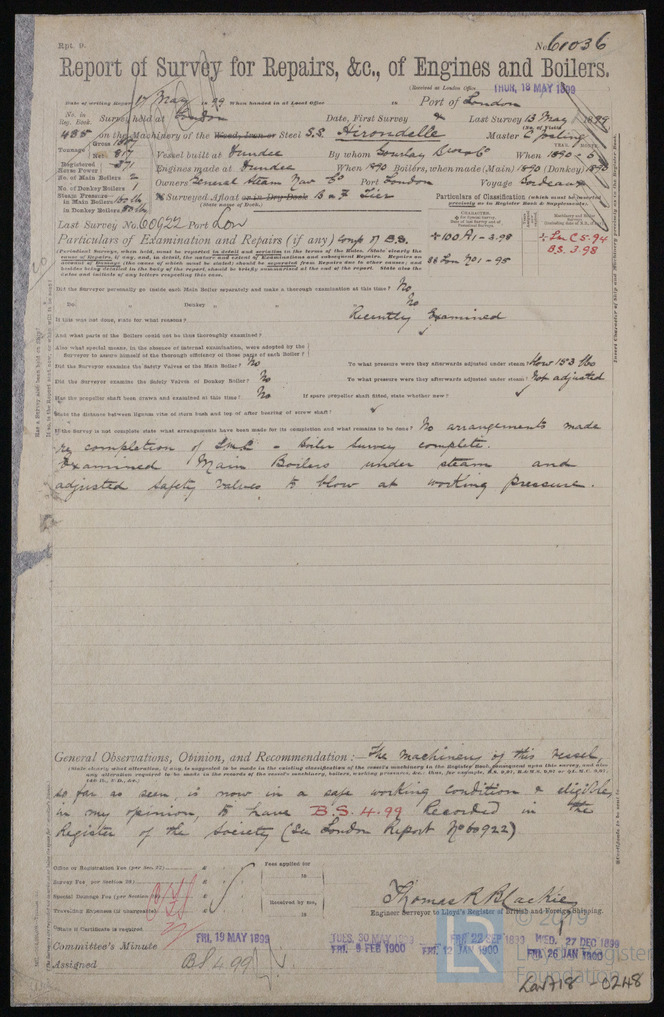 Rpt. 9.
No 61036
Report of Survey for Repairs, &c., of Engines and Boilers.
(Received at London Office THUR, 18 MAY 1899
Date of writing Report 17 May 1899 When handed in at Local Office 18 Port of London
No. in Reg. Book Survey held at London Date, First Survey & Last Survey 13 May 1899
(No. of Visits)
485 on the Machinery of the Wood, Iron or Steel S.S. Hirondelle Master
Tonnage Gross 1607
Net 817 Vessel built at Dundee By whom Gourlay Bros & Co When 1890 - 6
Registered Horse Power 371 Engines made at Dundee When 1890 Boilers, when made (Main) 1890 (Donkey) 1890
No. of Main Boilers 2
No. of Donkey Boilers 1 Owners General Steam Nav Co Port London Voyage Bordeaux
Steam Pressure in Main Boilers 150 lb Surveyed Afloat or in Dry Dock B & F Tier
in Donkey Boilers 80 lb (State name of Dock.)
Particulars of Classification (which must be inserted precisely as in Register Book & Supplements).
Last Survey No. 60922 Port Lon
Particulars of Examination and Repairs (if any) Comp of B.S.
100A1 - 3.98
LMC 5.94
B.S. 3.98
SS Lon No1 - 95
Did the Surveyor personally go inside each Main Boiler separately and make a thorough examination at this time? No
Do. " Donkey " " " No
If this was not done, state for what reasons? Recently Examined
And what parts of the Boilers could not be thus thoroughly examined?
Also what special means, in the absence of internal examination, were adopted by the
Surveyor to assure himself of the thorough efficiency of those parts of each Boiler?
Did the Surveyor examine the Safety Valves of the Main Boiler? No To what pressure were they afterwards adjusted under steam? Now 153 lbs
Did the Surveyor examine the Safety Valves of Donkey Boiler? No To what pressure were they afterwards adjusted under steam? Not adjusted
Has the propeller shaft been drawn and examined at this time? No If spare propeller shaft fitted, state whether new?
State the distance between lignum vitæ of stern bush and top of after bearing of screw shaft?
If the Survey is not complete state what arrangements have been made for its completion and what remains to be done? No arrangements made
re completion of LMC - Boiler Survey complete.
Examined Main Boilers under steam and
adjusted safety valves to blow at working pressure.
General Observations, Opinion, and Recommendation:— The machinery of this vessel,
so far as seen, is now in a safe working condition & eligible,
in my opinion, to have B.S. 4.99 Recorded in the
Register of the Society (See London Report No 60922)
Office or Registration Fee (per Sec. 27)
Survey Fee per Section 28)
Special Damage Fee (per Section 28)
Travelling Expenses (if chargeable)
Fees applied for
18
Received by me,
18
Thomas R Blackie
Engineer Surveyor to Lloyd's Register of British and Foreign Shipping.
State if Certificate is required
Committee's Minute FRI, 19 MAY 1899
TUES. 30 MAY 1899
FRI. 9 FEB 1900
FRI 22 SEP 1899
FRI. 12 JAN 1900
WED. 27 DEC 1899
FRI. 26 JAN 1900
Assigned BS 4.99
© 2019
Lloyd's Register
Foundation
LON718 - 0248